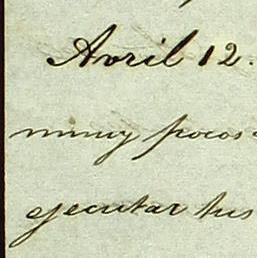 Avril 12.
muy pocos
ejecutar sus